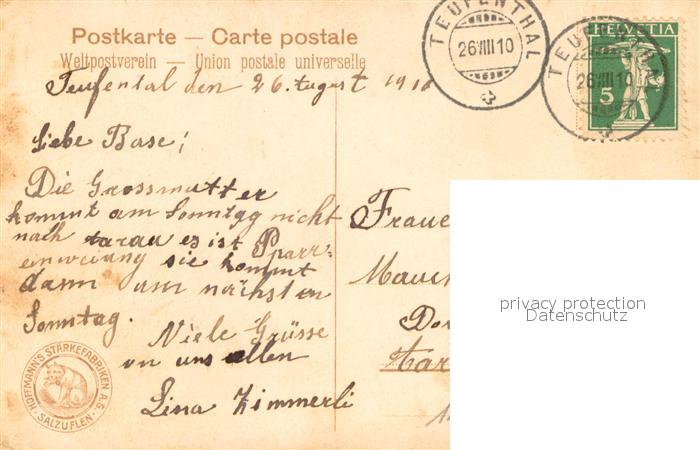 Postkarte — Carte postale
Weltpostverein — Union postale universelle
TEUFENTHAL
26 VIII 10
TEUFENTHAL
26 VIII 10
HELVETIA
5
Teufental den 26. August 1910
Liebe Base!
Die Grossmutter
kommt am Sonntag nicht
nach tarau es ist Pfarr-
einweiung sie kommt
dann am nächsten
Sonntag.
Viele Grüsse
von uns allen
Lina Zimmerli
Fraue
Maue
Dor
tar
privacy protection
Datenschutz
HOFFMANN'S STÄRKEFABRIKEN A.G.
SALZUFLEN